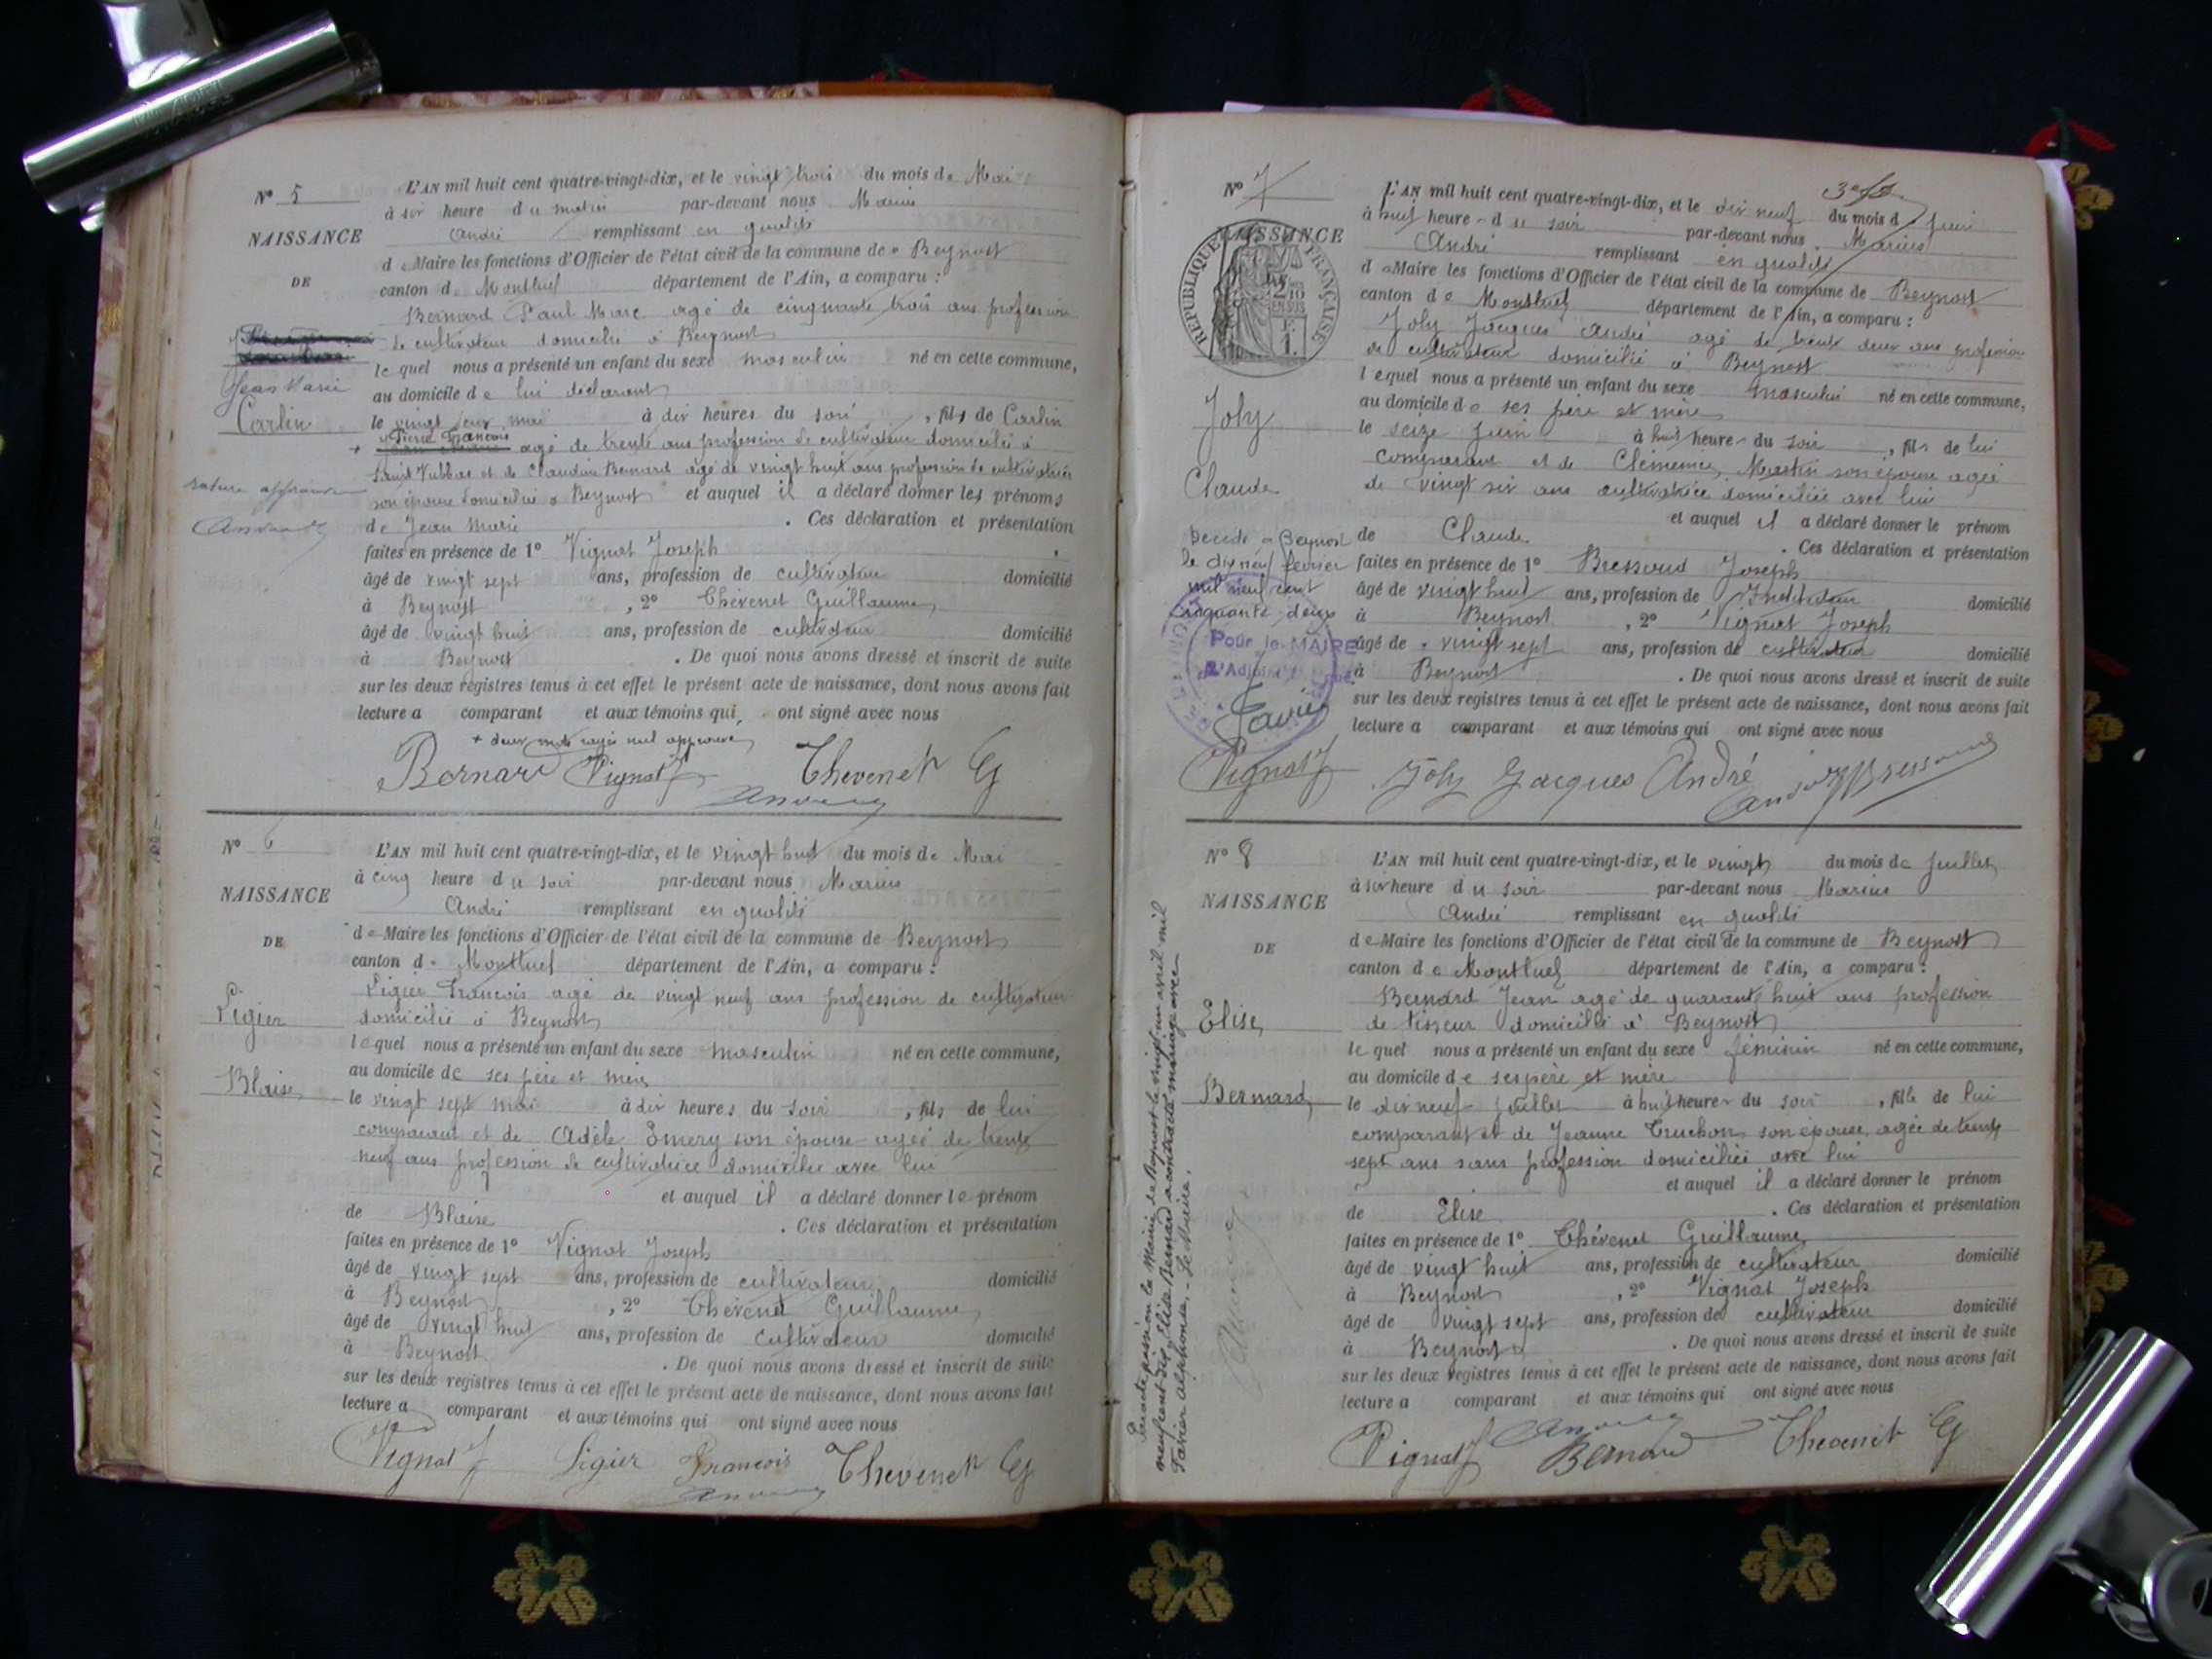 N° 5
NAISSANCE
DE
Jean Marie
Carlin
rature approuvée
L'AN mil huit cent quatre-vingt-dix, et le vingt trois du mois de Mai
à six heure du matin par-devant nous Marius
André remplissant en qualité
de Maire les fonctions d'Officier de l'état civil de la commune de Beynost
canton de Montluel département de l'Ain, a comparu :
Bernard Paul Marc agé de cinquante trois ans profession
de cultivateur domicilié à Beynost
lequel nous a présenté un enfant du sexe masculin né en cette commune,
au domicile de lui déclarant
le vingt deux mai à dix heures du soir, fils de Carlin
+ Pierre François agé de trente ans profession de cultivateur domicilié à
Saint Vulbas et de Claudine Bernard agée de vingt huit ans profession de cultivatrice
son épouse domiciliée à Beynost et auquel il a déclaré donner les prénoms
de Jean Marie. Ces déclaration et présentation
faites en présence de 1° Vignat Joseph
âgé de vingt sept ans, profession de cultivateur domicilié
à Beynost, 2° Thévenet Guillaume
âgé de vingt huit ans, profession de cultivateur domicilié
à Beynost. De quoi nous avons dressé et inscrit de suite
sur les deux registres tenus à cet effet le présent acte de naissance, dont nous avons fait
lecture a comparant et aux témoins qui ont signé avec nous
+ deux mots rayés nul approuvé
Bernard Vignat J Thevenet G
N° 6
NAISSANCE
DE
Ligier
Blaise
L'AN mil huit cent quatre-vingt-dix, et le vingt huit du mois de Mai
à cinq heure du soir par-devant nous Marius
André remplissant en qualité
de Maire les fonctions d'Officier de l'état civil de la commune de Beynost
canton de Montluel département de l'Ain, a comparu :
Ligier François agé de vingt neuf ans profession de cultivateur
domicilié à Beynost
lequel nous a présenté un enfant du sexe masculin né en cette commune,
au domicile de ses père et mère
le vingt sept mai à dix heures du soir, fils de lui
comparant et de Adèle Emery son épouse agée de trente
neuf ans profession de cultivatrice domiciliée avec lui
et auquel il a déclaré donner le prénom
de Blaise. Ces déclaration et présentation
faites en présence de 1° Vignat Joseph
âgé de vingt sept ans, profession de cultivateur domicilié
à Beynost, 2° Thévenet Guillaume
âgé de vingt huit ans, profession de cultivateur domicilié
à Beynost. De quoi nous avons dressé et inscrit de suite
sur les deux registres tenus à cet effet le présent acte de naissance, dont nous avons fait
lecture a comparant et aux témoins qui ont signé avec nous
Vignat J Ligier François Thevenet G
N° 7
NAISSANCE
REPUBLIQUE FRANÇAISE
Joly
Claude
Décédé à Beynost
le dix neuf février
mil neuf cent
cinquante deux
Pour le MAIRE
L'Adjoint
L'AN mil huit cent quatre-vingt-dix, et le dix neuf du mois d Juin
à huit heure du soir par-devant nous Marius
André remplissant en qualité
de Maire les fonctions d'Officier de l'état civil de la commune de Beynost
canton de Montluel département de l'Ain, a comparu :
Joly Jacques André agé de trente deux ans profession
de cultivateur domicilié à Beynost
lequel nous a présenté un enfant du sexe masculin né en cette commune,
au domicile de ses père et mère
le seize Juin à huit heure du soir, fils de lui
comparant et de Clémence Martin son épouse agée
de vingt six ans cultivatrice domiciliée avec lui
et auquel il a déclaré donner le prénom
de Claude. Ces déclaration et présentation
faites en présence de 1° Bressoud Joseph
âgé de vingt huit ans, profession de Instituteur domicilié
à Beynost, 2° Vignat Joseph
âgé de vingt sept ans, profession de cultivateur domicilié
à Beynost. De quoi nous avons dressé et inscrit de suite
sur les deux registres tenus à cet effet le présent acte de naissance, dont nous avons fait
lecture a comparant et aux témoins qui ont signé avec nous
Vignat J Joly Jacques André
N° 8
NAISSANCE
DE
Elise
Bernard
Par acte passé en la Mairie de Beynost le vingt un avril mil
neuf cent dix, Elise Bernard a contracté mariage avec
Favier Alphonse. - Le Maire.
L'AN mil huit cent quatre-vingt-dix, et le vingt du mois de Juillet
à six heure du soir par-devant nous Marius
André remplissant en qualité
de Maire les fonctions d'Officier de l'état civil de la commune de Beynost
canton de Montluel département de l'Ain, a comparu :
Bernard Jean agé de quarante huit ans profession
de tisseur domicilié à Beynost
lequel nous a présenté un enfant du sexe féminin né en cette commune,
au domicile de ses père et mère
le dix neuf Juillet à huit heure du soir, fille de lui
comparant et de Jeanne Truchon son épouse agée de trente
sept ans sans profession domiciliée avec lui
et auquel il a déclaré donner le prénom
de Elise. Ces déclaration et présentation
faites en présence de 1° Thévenet Guillaume
âgé de vingt huit ans, profession de cultivateur domicilié
à Beynost, 2° Vignat Joseph
âgé de vingt sept ans, profession de cultivateur domicilié
à Beynost. De quoi nous avons dressé et inscrit de suite
sur les deux registres tenus à cet effet le présent acte de naissance, dont nous avons fait
lecture a comparant et aux témoins qui ont signé avec nous
Vignat J Bernard Thevenet G